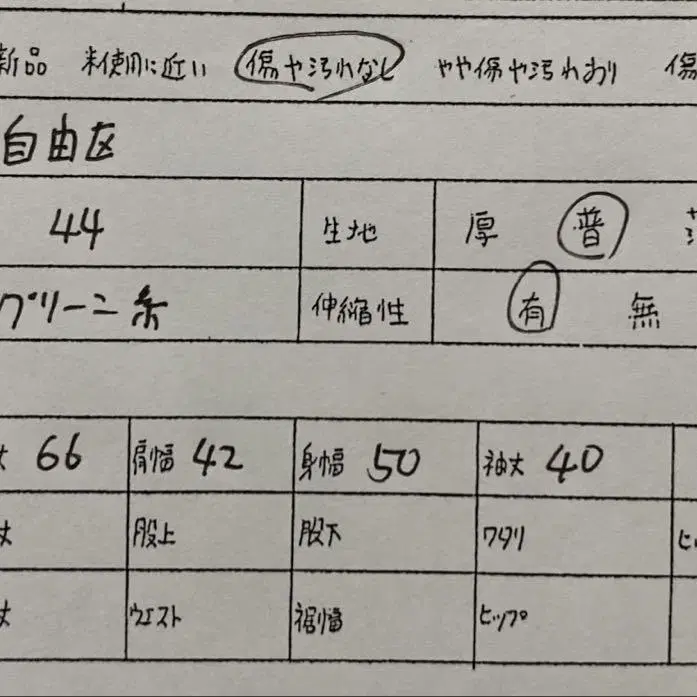 新品 未使用に近い 傷や汚れなし やや傷や汚れあり 傷
自由区
44 生地 厚 普
グリーン系 伸縮性 有 無
丈 66 肩幅 42 身幅 50 袖丈 40
丈 股上 股下 ワタリ ヒ
丈 ウエスト 裾幅 ヒップ